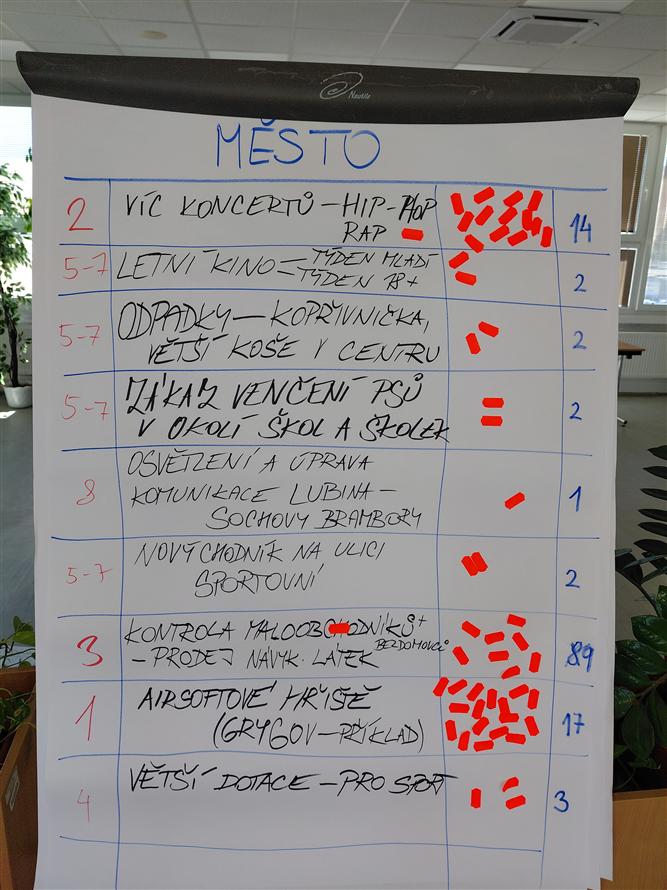 Nautile
MĚSTO
2 VÍC KONCERTŮ – HIP-HOP 14
RAP
5-7 LETNÍ KINO – TÝDEN MLADÍ 2
– TÝDEN 18+
5-7 ODPADKY – KOPŘIVNIČKA, 2
VĚTŠÍ KOŠE V CENTRU
5-7 ZÁKAZ VENČENÍ PSŮ 2
V OKOLÍ ŠKOL A ŠKOLEK
OSVĚTLENÍ A ÚPRAVA
8 KOMUNIKACE LUBINA – 1
SOCHOVY BRAMBORY
5-7 NOVÝ CHODNÍK NA ULICI 2
SPORTOVNÍ
3 KONTROLA MALOOBCHODNÍKŮ + BEZDOMOVCŮ
– PRODEJ NÁVYK. LÁTEK 9
1 AIRSOFTOVÉ HŘIŠTĚ 17
(GRYGOV – PŘÍKLAD)
4 VĚTŠÍ DOTACE – PRO SPORT 3